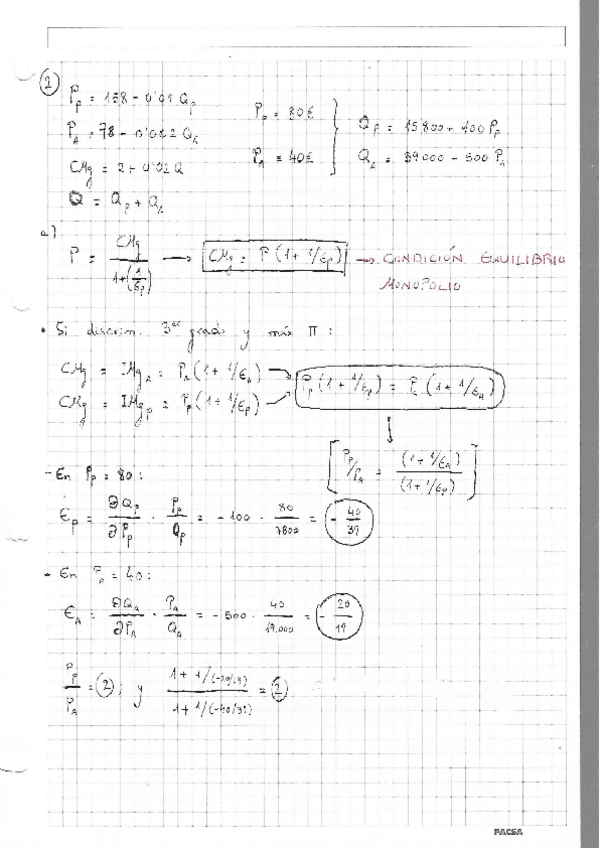 2
P_p = 158 - 0'01 Q_p
P_A = 78 - 0'002 Q_A
CMg = 2 + 0'02 Q
Q = Q_p + Q_A
P_p = 80€
P_A = 40€
Q_p = 15800 - 100 P_p
Q_A = 39000 - 500 P_A
a)
P = CMg / (1 + (1/ε_p)) → CMg = P (1 + 1/ε_p) → CONDICIÓN EQUILIBRIO
MONOPOLIO
• Si discrim. 3er grado y máx Π :
CMg = IMg_A = P_A (1 + 1/ε_A)
CMg = IMg_p = P_p (1 + 1/ε_p)
P_p (1 + 1/ε_p) = P_A (1 + 1/ε_A)
[P_p/P_A = (1 + 1/ε_A) / (1 + 1/ε_p)]
- En P_p = 80 :
ε_p = ∂Q_p/∂P_p · P_p/Q_p = -100 · 80/7800 = - 40/39
- En P_A = 40 :
ε_A = ∂Q_A/∂P_A · P_A/Q_A = -500 · 40/19.000 = - 20/19
P_p/P_A = 2 ; y (1 + 1/(-20/19)) / (1 + 1/(-40/39)) = 2
PACSA